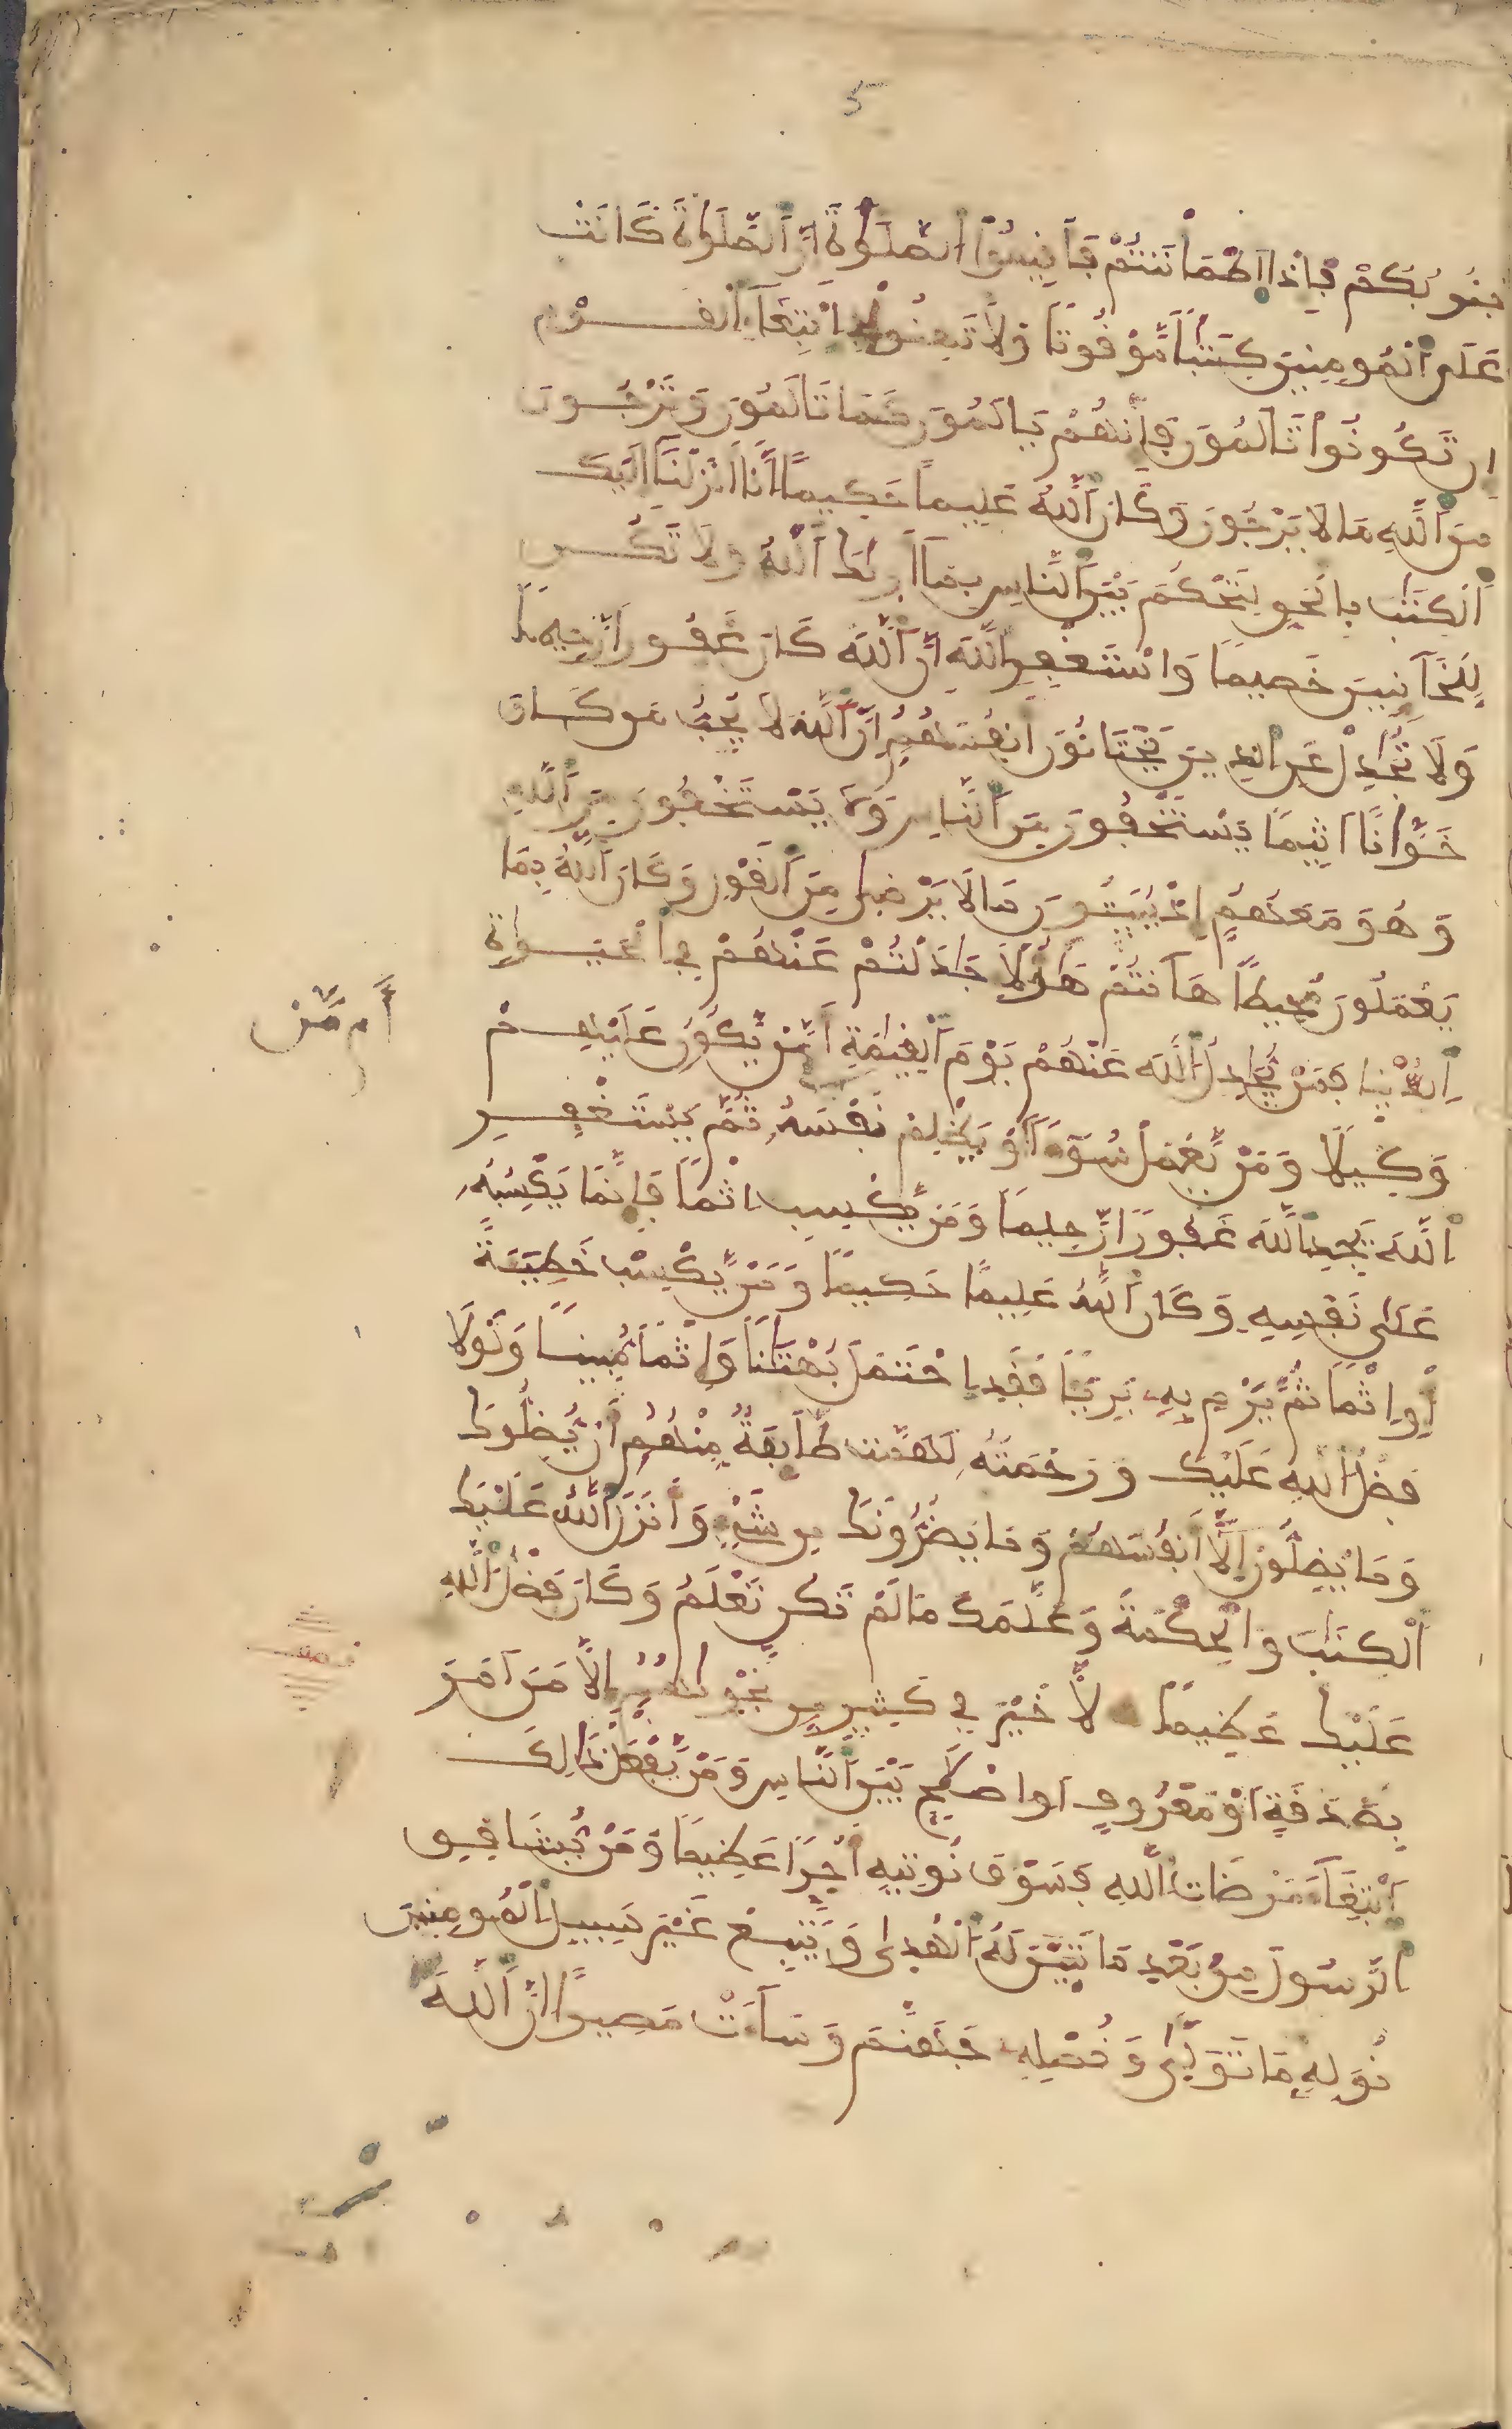 5
جُنُوبُكُمْ فَإِذَا اَطْمَأْنَنتُمْ فَأَقِيمُوا۟ اُ۬لصَّلَوٰةَ إِنَّ اَ۬لصَّلَوٰةَ كَانَتْ
عَلَى اَ۬لْمُومِنِينَ كِتَٰباً مَّوْقُوتاً وَلَا تَهِنُوا۟ فِے اِ۪بْتِغَآءِ اِ۬لْقَوْمِ
إِن تَكُونُوا۟ تَالَمُونَ فَإِنَّهُمْ يَالَمُونَ كَمَا تَالَمُونَ وَتَرْجُونَ
مِنَ اَ۬للَّهِ مَا لَا يَرْجُونَ وَكَانَ اَ۬للَّهُ عَلِيماً حَكِيماً إِنَّا أَنزَلْنَا إِلَيْكَ
اَ۬لْكِتَٰبَ بِالْحَقِّ لِتَحْكُمَ بَيْنَ اَ۬لنَّاسِ بِمَا أَرَىٰكَ اَ۬للَّهُ وَلَا تَكُن
لِّلْخَآئِنِينَ خَصِيماً وَاسْتَغْفِرِ اِ۬للَّهَ إِنَّ اَ۬للَّهَ كَانَ غَفُوراً رَّحِيماً
وَلَا تُجَٰدِلْ عَنِ اِ۬لذِينَ يَخْتَانُونَ أَنفُسَهُمُ إِنَّ اَ۬للَّهَ لَا يُحِبُّ مَن كَانَ
خَوَّاناً أَثِيماً يَسْتَخْفُونَ مِنَ اَ۬لنَّاسِ وَلَا يَسْتَخْفُونَ مِنَ اَ۬للَّهِ
وَهُوَ مَعَهُمُ إِذْ يُبَيِّتُونَ مَا لَا يَرْضَىٰ مِنَ اَ۬لْقَوْلِ وَكَانَ اَ۬للَّهُ بِمَا
يَعْمَلُونَ مُحِيطاً هَآنتُمْ هَٰؤُلَآءِ جَٰدَلْتُمْ عَنْهُمْ فِے اِ۬لْحَيَوٰةِ
اِ۬لدُّنْيَا فَمَنْ يُّجَٰدِلُ اُ۬للَّهَ عَنْهُمْ يَوْمَ اَ۬لْقِيَٰمَةِ أَمَّنْ يَّكُونُ عَلَيْهِمْ
أَم مَّنْ
وَكِيلاً وَمَنْ يَّعْمَلْ سُوٓءاً أَوْ يَظْلِمْ نَفْسَهُۥ ثُمَّ يَسْتَغْفِرِ
اِ۬للَّهَ يَجِدِ اِ۬للَّهَ غَفُوراً رَّحِيماً وَمَنْ يَّكْسِبِ اِثْماً فَإِنَّمَا يَكْسِبُهُۥ
عَلَىٰ نَفْسِهِۦ وَكَانَ اَ۬للَّهُ عَلِيماً حَكِيماً وَمَنْ يَّكْسِبْ خَطِيٓـَٔةً
أَوِ اِثْماً ثُمَّ يَرْمِ بِهِۦ بَرِيٓـٔاً فَقَدِ اِ۪حْتَمَلَ بُهْتَٰناً وَإِثْماً مُّبِيناً وَلَوْلَا
فَضْلُ اُ۬للَّهِ عَلَيْكَ وَرَحْمَتُهُۥ لَهَمَّت طَّآئِفَةٌ مِّنْهُمُ أَنْ يُّضِلُّوكَ
وَمَا يُضِلُّونَ إِلَّا أَنفُسَهُمْ وَمَا يَضُرُّونَكَ مِن شَےْءٍ وَأَنزَلَ اَ۬للَّهُ عَلَيْكَ
اَ۬لْكِتَٰبَ وَالْحِكْمَةَ وَعَلَّمَكَ مَا لَمْ تَكُن تَعْلَمُ وَكَانَ فَضْلُ اُ۬للَّهِ
عَلَيْكَ عَظِيماً لَّا خَيْرَ فِے كَثِيرٍ مِّن نَّجْوَىٰهُمُ إِلَّا مَنَ اَمَرَ
بِصَدَقَةٍ أَوْ مَعْرُوفٍ أَوِ اِصْلَٰحٍ بَيْنَ اَ۬لنَّاسِ وَمَنْ يَّفْعَلْ ذَٰلِكَ
اَ۪بْتِغَآءَ مَرْضَاتِ اِ۬للَّهِ فَسَوْفَ نُوتِيهِ أَجْراً عَظِيماً وَمَنْ يُّشَاقِقِ
اِ۬لرَّسُولَ مِنۢ بَعْدِ مَا تَبَيَّنَ لَهُ اُ۬لْهُدَىٰ وَيَتَّبِعْ غَيْرَ سَبِيلِ اِ۬لْمُومِنِينَ
نُوَلِّهِۦ مَا تَوَلَّىٰ وَنُصْلِهِۦ جَهَنَّمَ وَسَآءَتْ مَصِيراً إِنَّ اَ۬للَّهَ